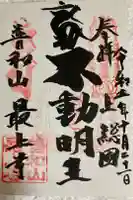 奉拝
令和三年十月二十三日
上総国
不動明王
普和山
最上寺